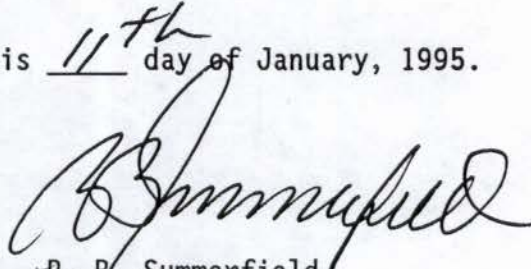 is 11th day of January, 1995.
Summerfield